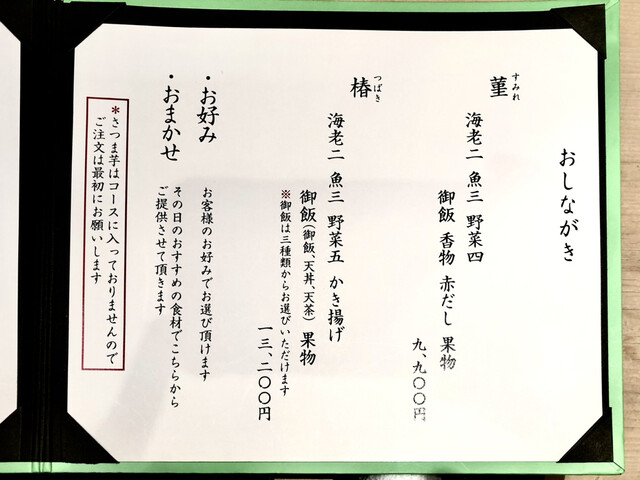 おしながき
菫
すみれ
海老二 魚三 野菜四
御飯 香物 赤だし 果物
九、九〇〇円
椿
つばき
海老二 魚三 野菜五 かき揚げ
御飯（御飯、天丼、天茶） 果物
※御飯は三種類からお選びいただけます
一三、二〇〇円
・お好み
お客様のお好みでお選び頂けます
・おまかせ
その日のおすすめの食材でこちらから
ご提供させて頂きます
＊さつま芋はコースに入っておりませんので
ご注文は最初にお願いします